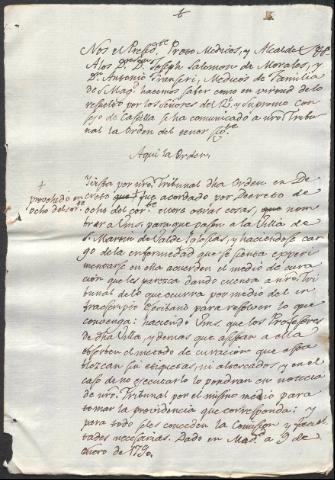 Nos el Presid.te Proto Medicos, y Alcaldes
A los D.res D. Joseph Salomon de Morales, y
D.n Antonio Franseri, Medicos de Familia
de S. Mag. hacemos saber como en virtud de lo
resuelto por los Señores del R.l y Supremo Con
sejo de Castilla se ha comunicado a nro Tribu
nal la Orden del tenor sig.te
Aqui la Orden
Vista por nro Tribunal dha Orden en De
creto que fue acordado por Decreto de
provehido en
ocho del cor.te
ocho del cor.te entre otras cosas, que nom
trar a Vms, para que pasen a la Villa de
S. Martin de Valde Iglesias, y haciendose car
go de la enfermedad que se piensa experi
mentarse en ella acuerden el medio de cura
cion que les parezca dando cuenta a nro Tri
bunal de lo que ocurra por medio del in
frascripto Escribano para resolver lo que
convenga: haciendo Vms. que los Profesores
de dha Villa, y demas que asistan a ella
observen el metodo de curacion que esta
blezcan sin etiquetas, ni altercados, y en el
caso de no executarlo lo pondran en noticia
de nro Tribunal por el mismo medio para
tomar la providencia que corresponda: y
para todo se les concede la Comision y facul
tades necesarias. Dado en Mad.d a 9 de
Enero de 1790.